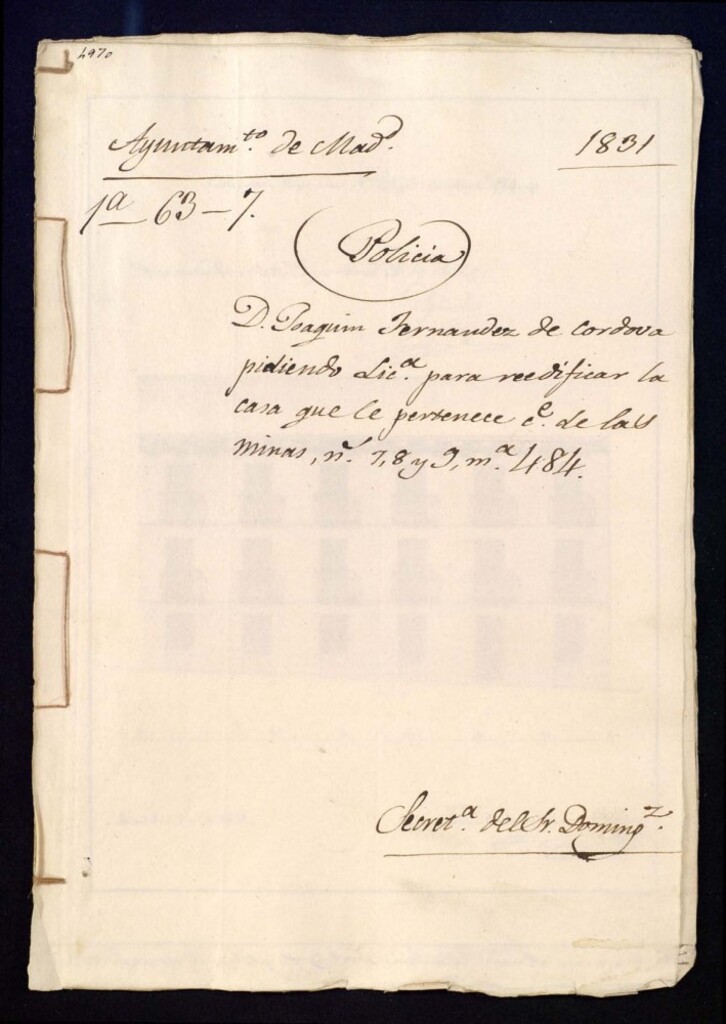 4970
Ayuntam.to de Mad.d
1831
1a 63-7.
Policia
D. Joaquim Fernandez de Cordova
pidiendo Lic.a para reedificar la
casa que le pertenece c.e de las
minas, n.s 7, 8 y 9, m.a 484.
Secret.a del Sr. Doming.z